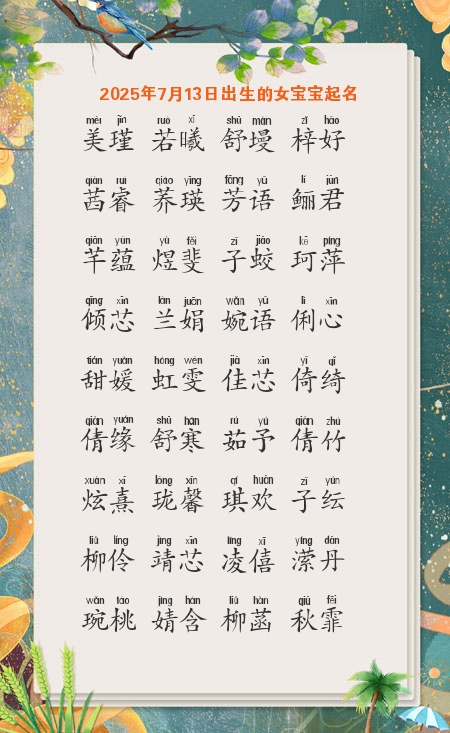 2025年7月13日出生的女宝宝起名
měi jǐn ruò xī shū màn zǐ hǎo
美瑾 若曦 舒墁 梓好
qiàn ruì qiáo yīng fāng yǔ lí jūn
茜睿 荞瑛 芳语 鲡君
qiān yùn yù fěi zǐ jiāo kē píng
芊蕴 煜斐 子蛟 珂萍
qīng xīn lán juān wǎn yǔ lì xīn
倾芯 兰娟 婉语 俐心
tián yuàn hóng wén jiā xīn yǐ qǐ
甜媛 虹雯 佳芯 倚绮
qiàn yuán shū hán rú yú qiàn zhú
倩缘 舒寒 茹予 倩竹
xuàn xī lóng xīn qí huān zǐ yún
炫熹 珑馨 琪欢 子纭
liǔ líng jìng xīn líng xī yíng dān
柳伶 靖芯 凌僖 潆丹
wǎn táo jìng hán liǔ hàn qiū fēi
琬桃 婧含 柳菡 秋霏